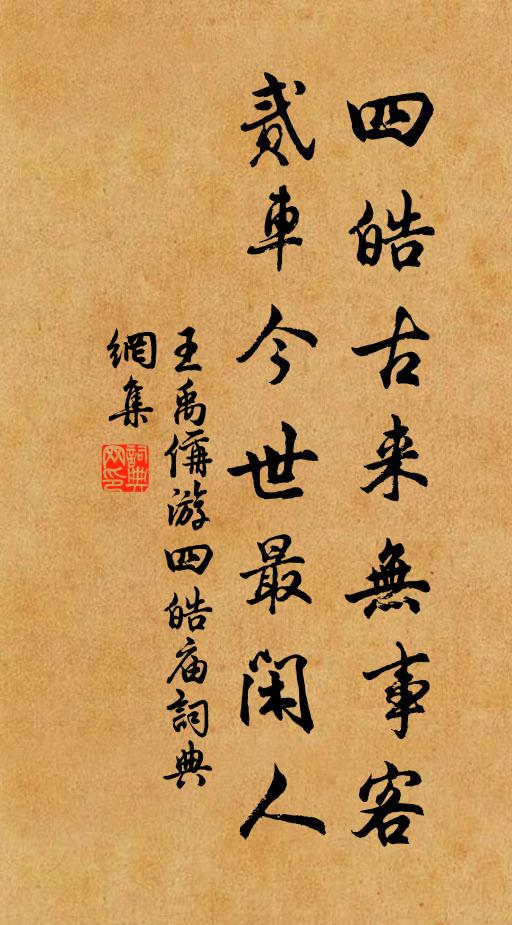 四皓古来無事客
貳車今世最闲人
王禹偁游四皓庙詞典
網集
詞典
网印